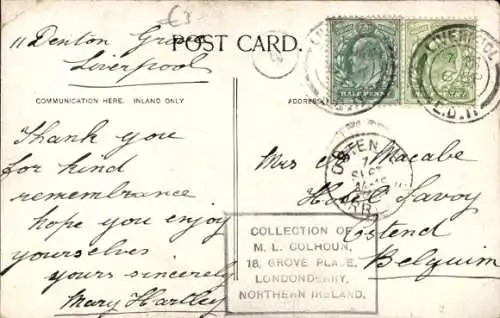 €3
11 Denton Grove
Liverpool
POST CARD.
COMMUNICATION HERE. INLAND ONLY
ADDRESS
HALF PENNY
LIVERPOOL
L.D.11
Thank you
for kind
remembrance
hope you enjoy
yourselves
yours sincerely
Mary Hartley
Mrs Macabe
Hotel Savoy
Ostend
Belguim
OSTEN
COLLECTION OF
M. L. COLHOUN,
18, GROVE PLACE,
LONDONDERRY,
NORTHERN IRELAND.